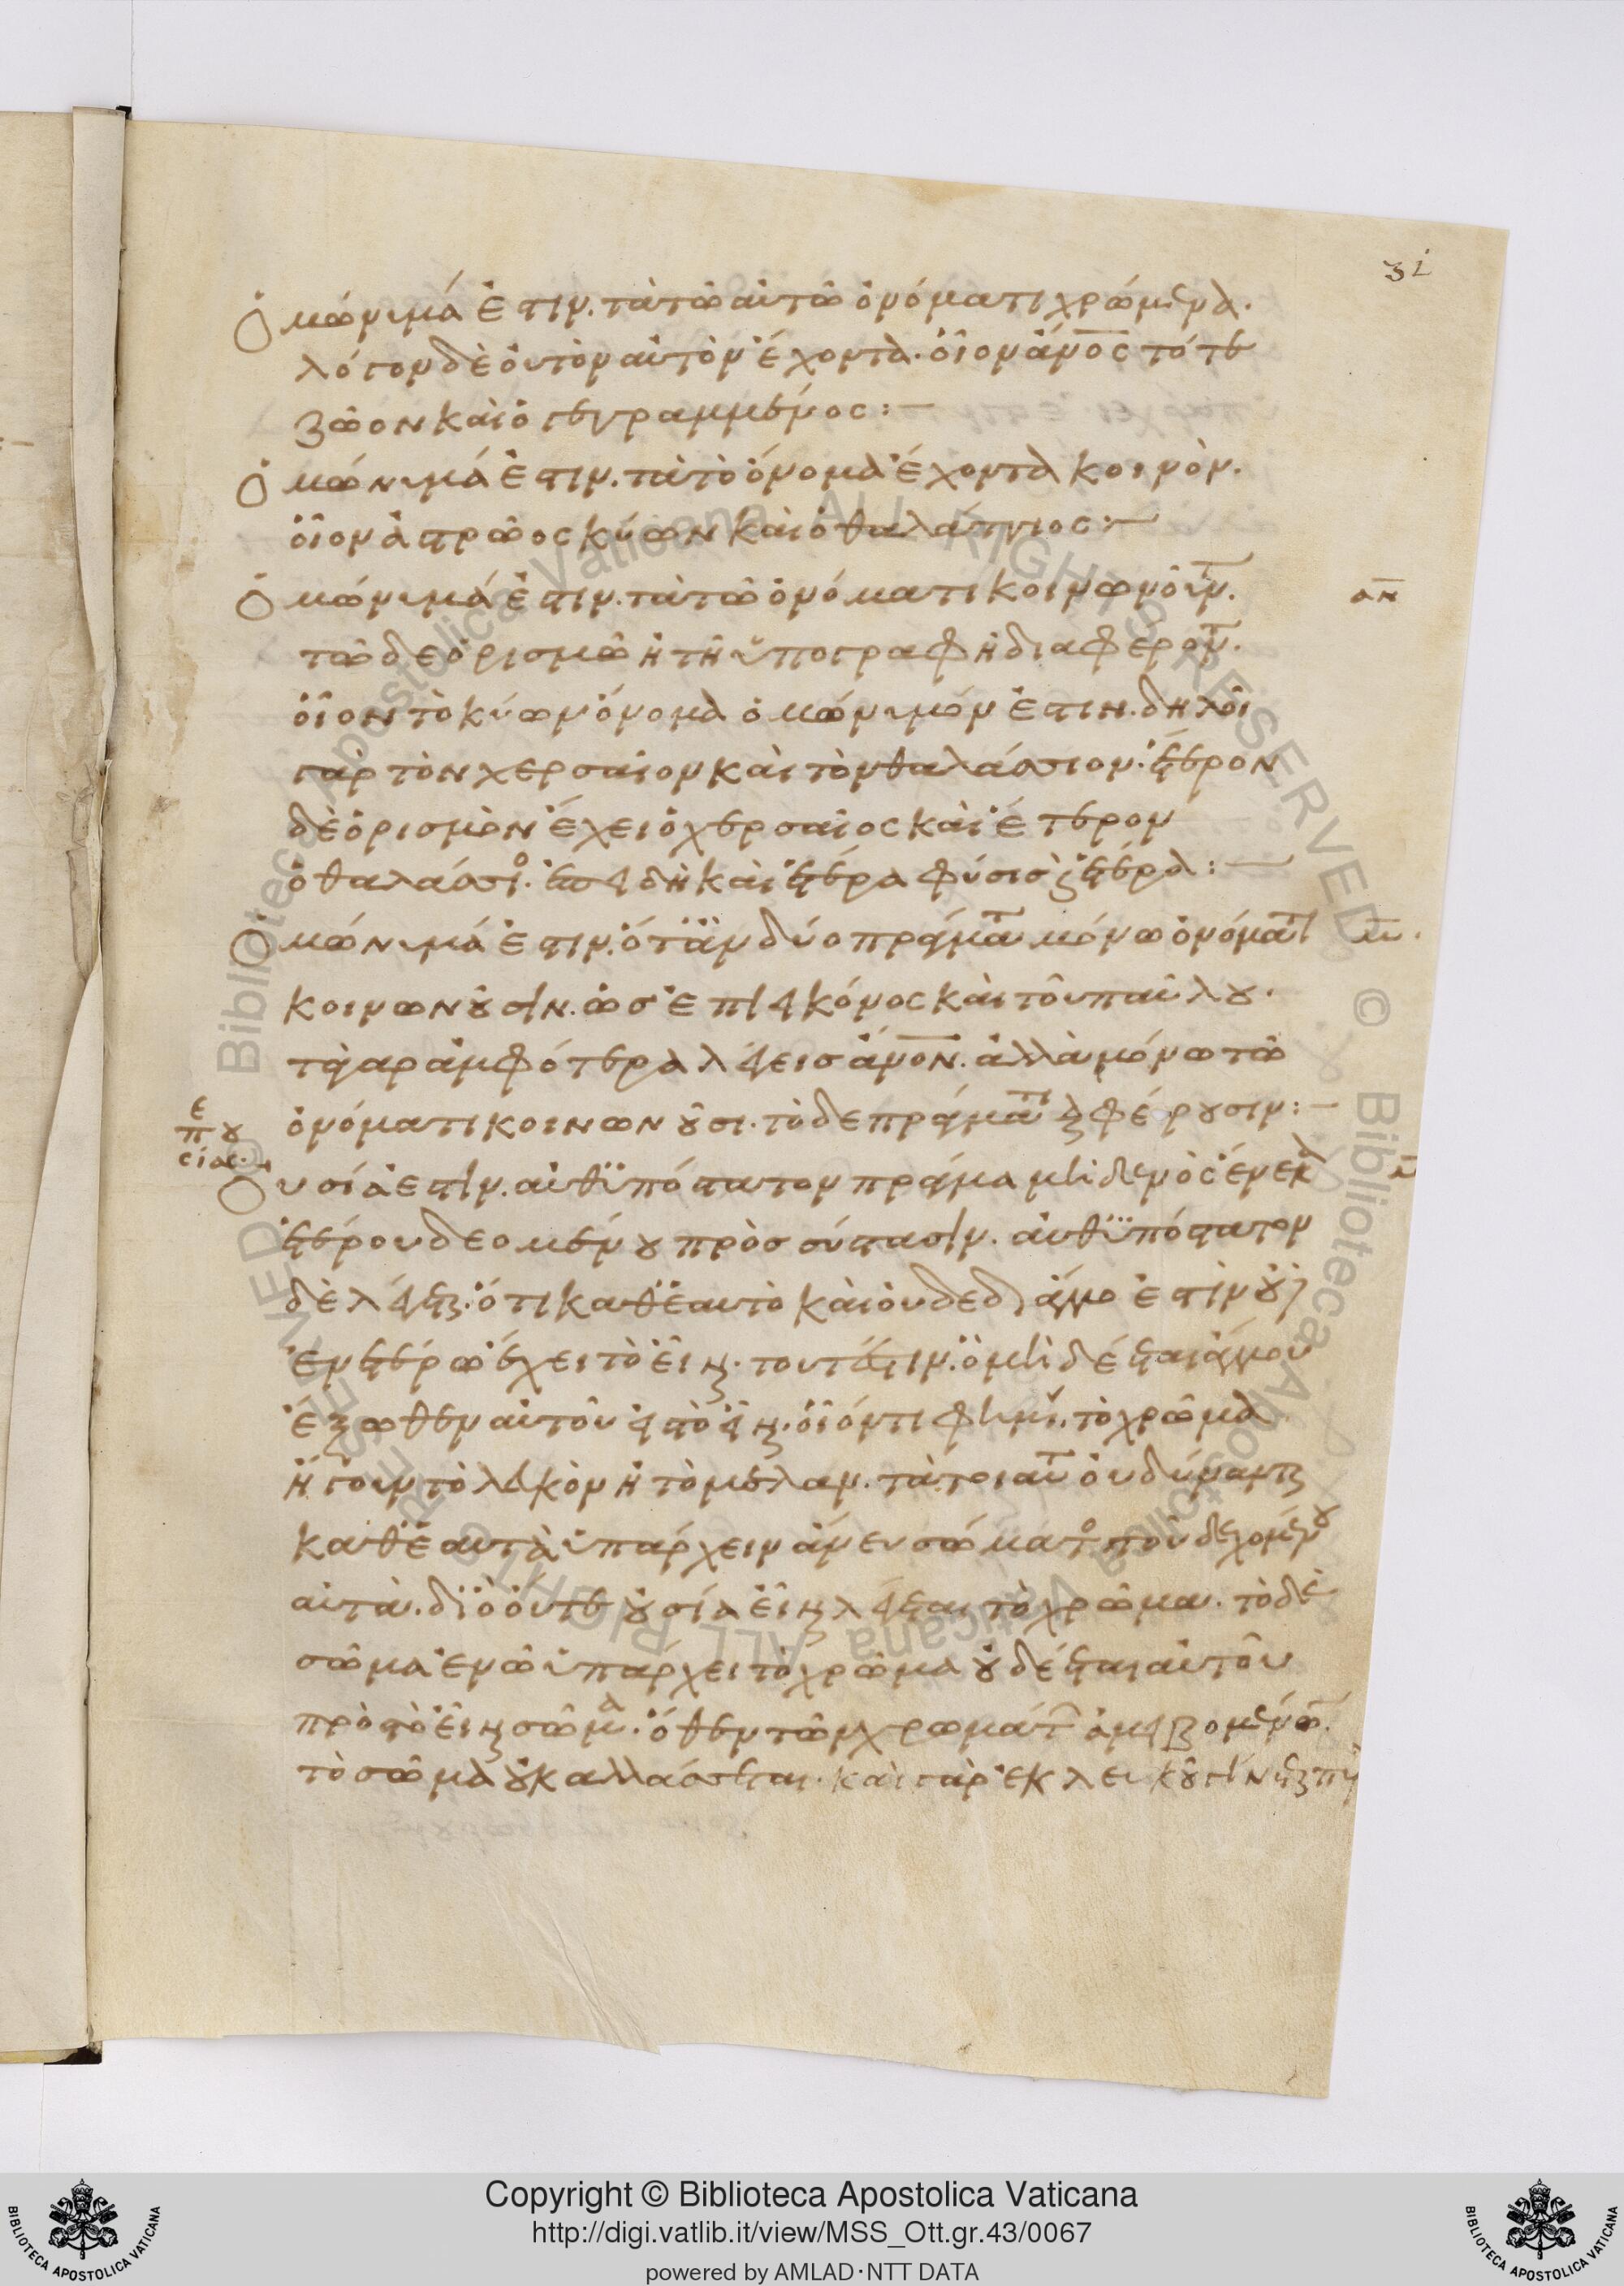 31
Ὁμώνυμά ἐστιν. τὰ τῶ αὐτῶ ὀνόματι χρώμενα.
λόγον δὲ οὐ τὸν αὐτὸν ἔχοντα. οἷον ἄνος τό τε
ζῶον καὶ ὁ γεγραμμένος:—
Ὁμώνυμά ἐστιν. τὰ τὸ ὄνομα ἔχοντα κοινὸν.
οἷον ἀστρῶος κύων καὶ ὁ θαλάττιος:—
Ὁμώνυμά ἐστιν. τὰ τῶ ὀνόματι κοινωνοῦντ.
τῶ δε ὁρισμῶ ἢ τῆ ὑπογραφῆ διαφέροντ.
οἷον τὸ κύων ὄνομα ὁμώνυμόν ἐστιν. δηλοῖ
γὰρ τὸν χερσαῖον καὶ τὸν θαλάσσιον. ἕτερον
δὲ ὁρισμὸν ἔχει ὁ χερσαῖος καὶ ἕτερον
ὁ θαλάσσιο. ἐπειδὴ καὶ ἑτέρα φύσις ἑτέρα:—
Ὁμώνυμά ἐστιν. ὅτ ἂν δύο πράγματα μόνω ὀνόματι
κοινωνοῦσιν. ὡς ἐπὶ κόνος καὶ τοῦ παύλου.
τὰ γὰρ ἀμφότερα λέγεις ἄνον. ἀλλὰ μόνω τῶ
ὀνόματι κοινωνοῦσι. τὸ δε πράγματι διαφέρουσιν:—
επ ου
σίας.
Οὐσία ἐστὶν. αὐθυπόστατον πράγμα μὴ δενὸς ἕνεκα
ἑτέρου δεομένου πρὸς σύστασιν. αὐθυπόστατον
δὲ λέγεται. ὅτι καθ ἑαυτὸ καὶ οὐ δε δι ἄλλο ἐστὶν οὐδ
ἐν ἑτέρω ἔχει τὸ εἶναι. τουτέστιν. ὃ μὴ δέεται ἄλλου
ἔξωθεν αὐτοῦ εἰς τὸ εἶναι. οἷόν τι φημί. τὸ χρῶμα
ἤγουν τὸ λευκὸν ἢ τὸ μέλαν. τὰ τοιαῦτ οὐ δύνανται
καθ ἑαυτὰ ὑπάρχειν ἄνευ σώματο που δεχομένου
αὐτὰ. διὸ οὔτε οὐσία εἶναι λέγεται τὸ χρῶμα. τὸ δὲ
σῶμα ἐν ὧ ὑπάρχει τὸ χρῶμα οὐ δέεται αὐτοῦ
πρὸς τὸ εἶναι σῶμα. ὅθεν τῶν χρωμάτ ἀμειβομένων.
τὸ σῶμα οὐκ ἀλλάσσεται. καὶ γὰρ ἐκ λευκοῦ
Copyright © Biblioteca Apostolica Vaticana
http://digi.vatlib.it/view/MSS_Ott.gr.43/0067
powered by AMLAD·NTT DATA